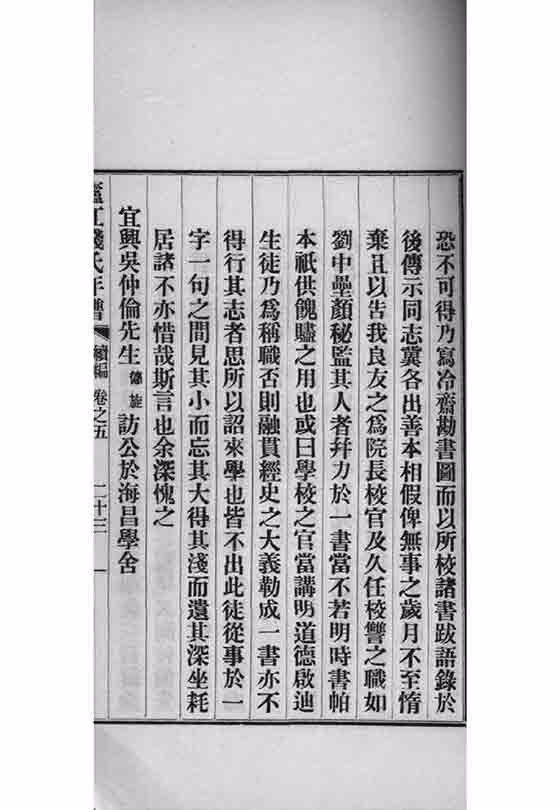 恐不可得乃寫冷齋勘書圖而以所校諸書跋語錄於
後傳示同志冀各出善本相假俾無事之歲月不至惰
棄且以告我良友之爲院長校官及久任校讐之職如
劉中壘顏秘監其人者幷力於一書當不若明時書帕
本祇供餽贐之用也或曰學校之官當講明道德啟迪
生徒乃爲稱職否則融貫經史之大義勒成一書亦不
得行其志者思所以詔來學也皆不出此徒從事於一
字一句之間見其小而忘其大得其淺而遺其深坐耗
居諸不亦惜哉斯言也余深愧之
宜興吳仲倫先生德旋訪公於海昌學舍
錢氏年譜 續編 卷之五 二十三